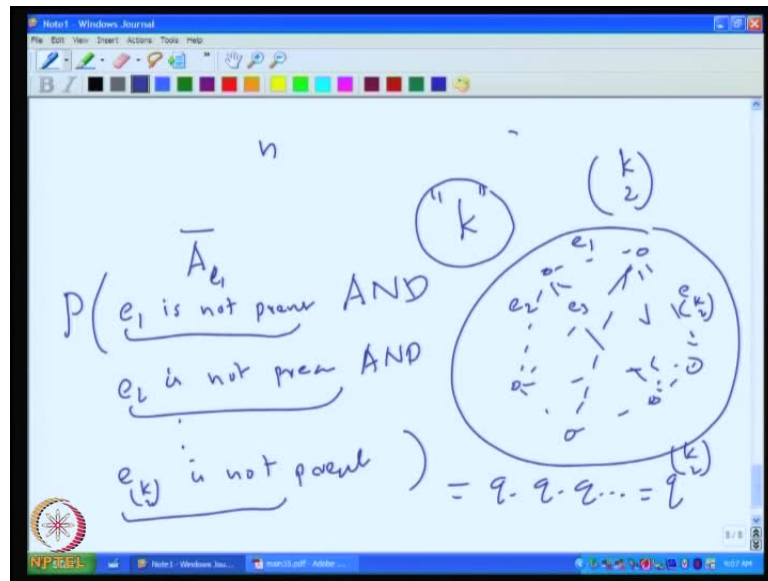 Note1 - Windows Journal
File Edit View Insert Actions Tools Help
B I
n
"k"
(k 2)
A̅e₁
P( e₁ is not present AND
e₂ is not presen AND
e(k 2) is not present ) = q. q. q... = q^(k 2)
e₁
e₂ e₃ e(k 2)
8/8
NPTEL Note1 - Windows Jou... main35.pdf - Adobe ... 9:07 AM